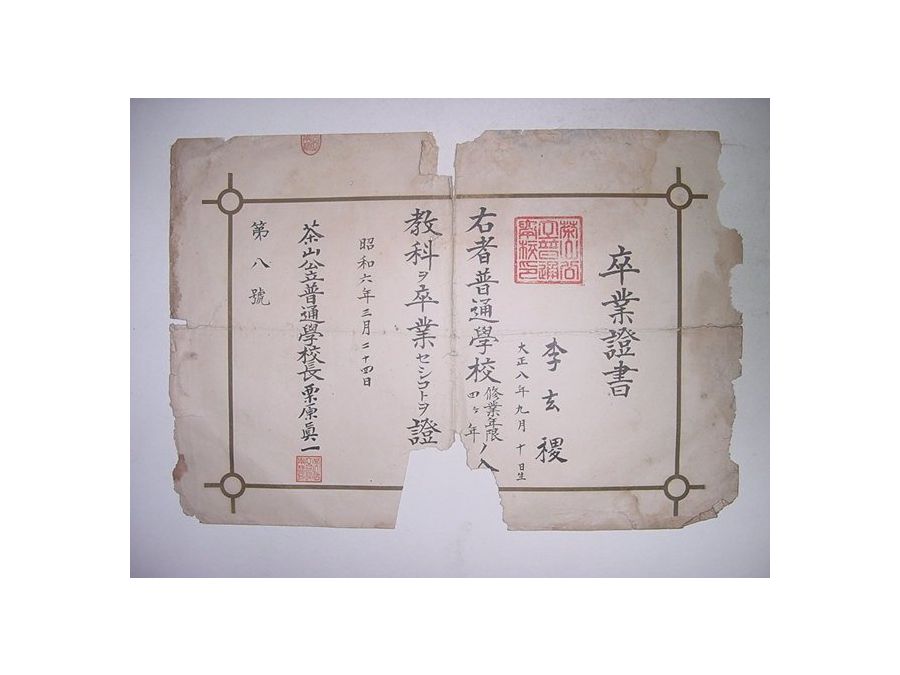 卒業證書
李玄稷
大正八年九月十日生
右者普通學校修業年限四ヶ年ノ
教科ヲ卒業セシコトヲ證
昭和六年三月二十四日
茶山公立普通學校長栗原眞一
第八號